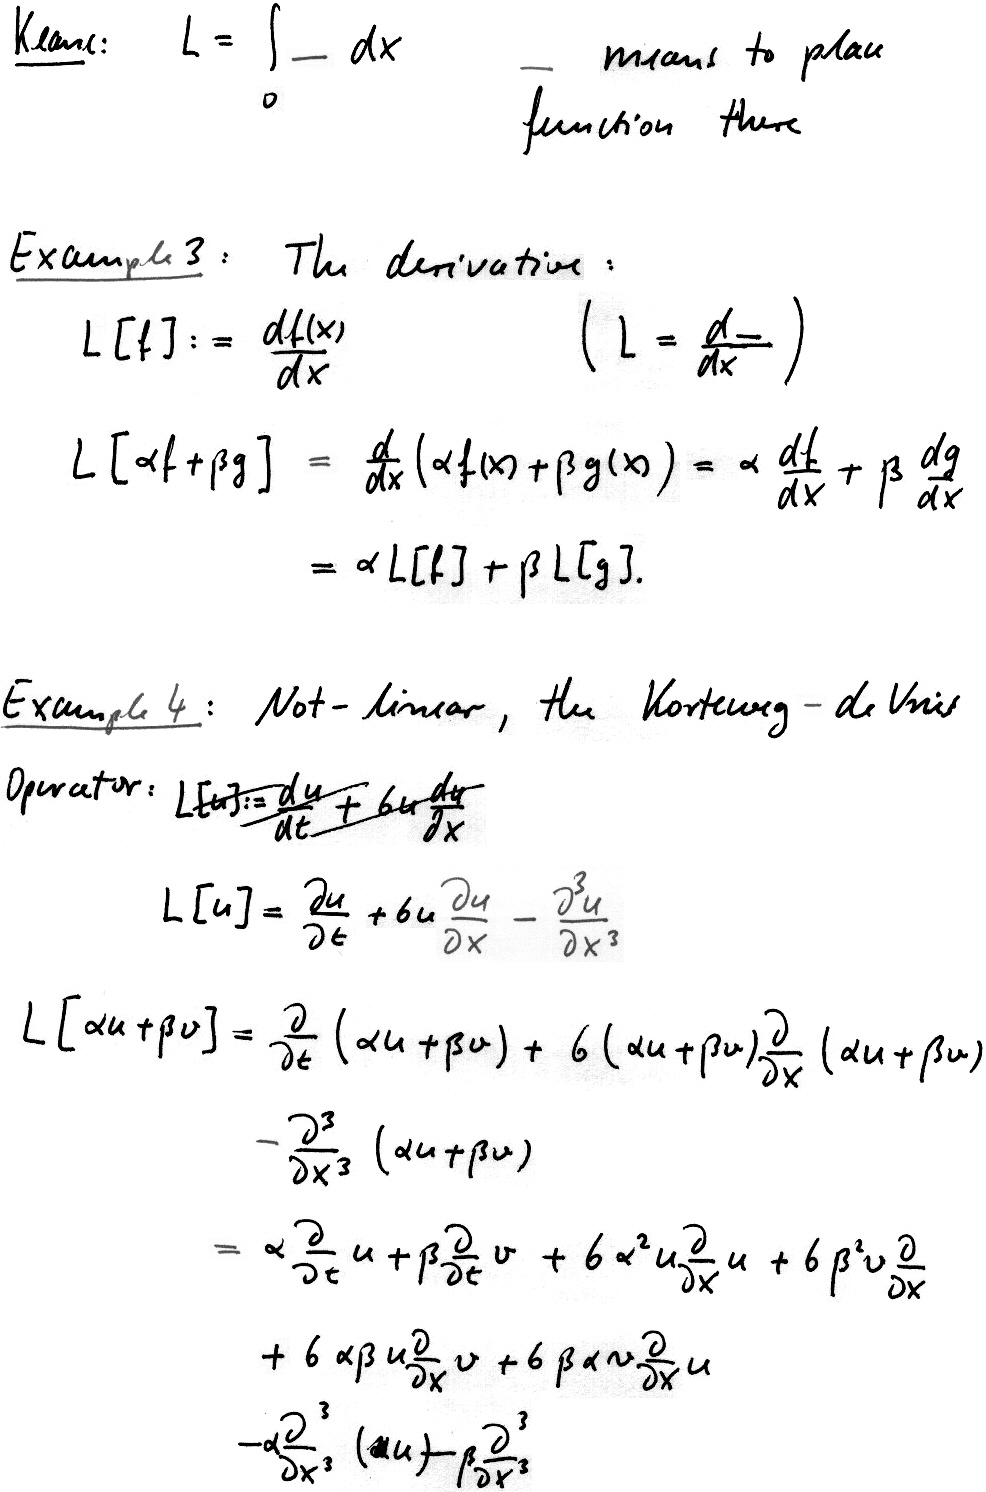 L = ∫₀ _ dx _ means to place
function there
Example 3: The derivative:
L[f] := df(x)/dx ( L = d_/dx )
L[αf+βg] = d/dx (αf(x)+βg(x)) = α df/dx + β dg/dx
= αL[f] + βL[g].
Example 4: Not-linear, the Korteweg-de Vries
Operator: L[u]:= du/dt + 6u du/∂x
L[u] = ∂u/∂t + 6u ∂u/∂x − ∂³u/∂x³
L[αu+βv] = ∂/∂t (αu+βv) + 6(αu+βv) ∂/∂x (αu+βv)
− ∂³/∂x³ (αu+βv)
= α ∂/∂t u + β ∂/∂t v + 6α²u ∂/∂x u + 6β²v ∂/∂x
+ 6αβ u ∂/∂x v + 6βα v ∂/∂x u
−α ∂³/∂x³ (u) − β ∂³/∂x³